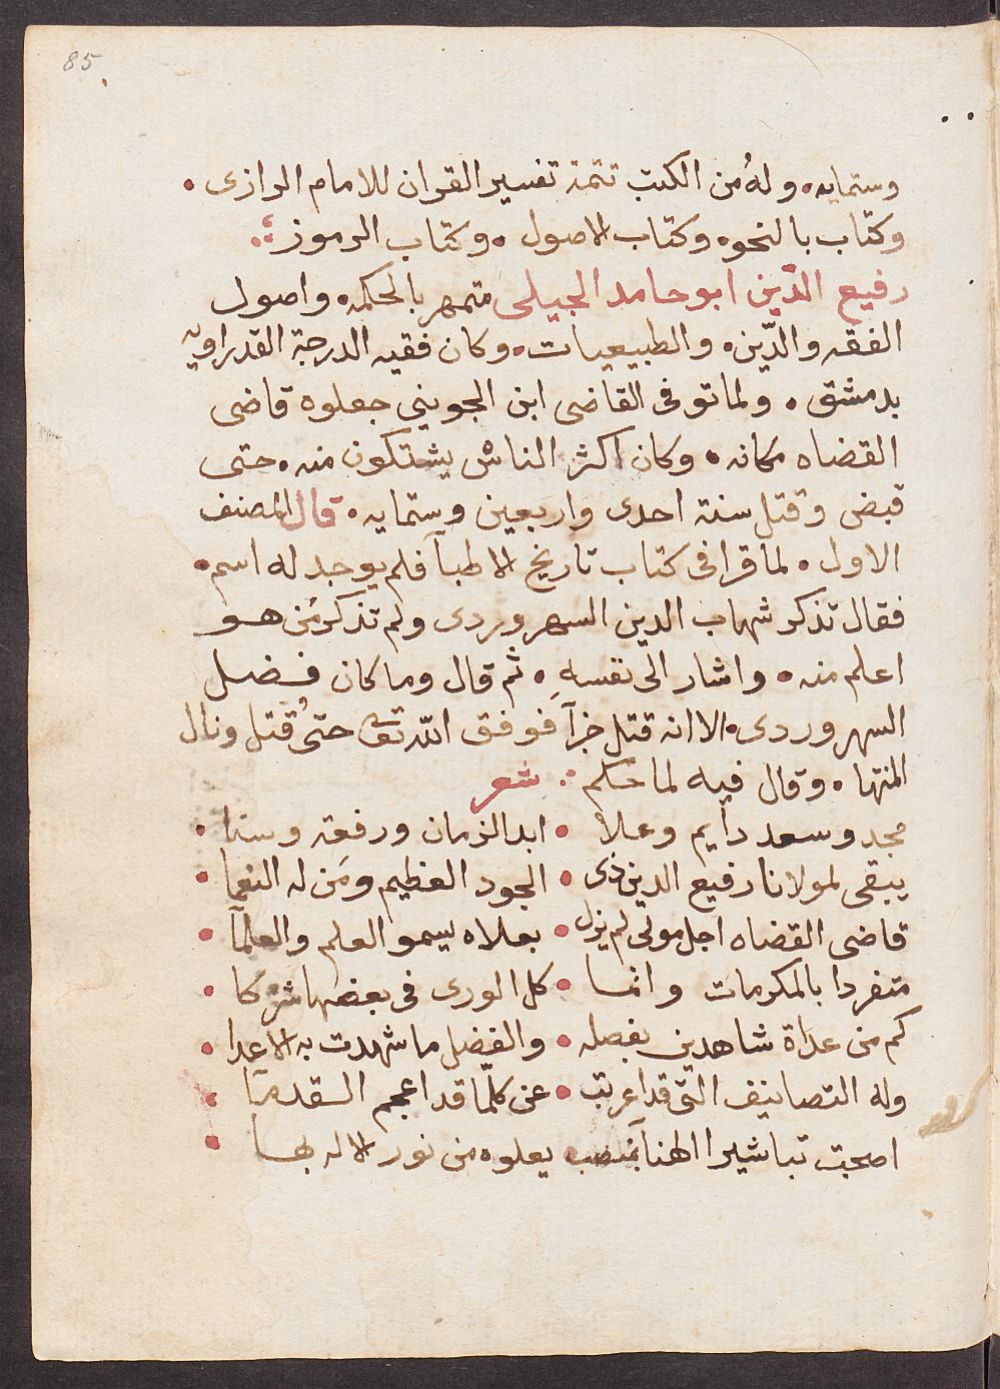 85
وستمايه • وله من الكتب تتمة تفسير القران للامام الرازى •
وكتاب بالنحو • وكتاب الاصول • وكتاب الرموز
رفيع الدّين ابو حامد الجيلى متمهر بالحكمه • واصول
الفقه والدّين • والطبيعيات • وكان فقيه الدرجة القدراويّه
بدمشق • ولما توفى القاضى ابن الجوينى جعلوه قاضى
القضاه مكانه • وكان اكثر الناس يشتكون منه • حتى
قبض وقتل سنة احدى واربعين وستمايه • قال المصنف
الاول • لما قرا فى كتاب تاريخ الاطبآ فلم يوجد له اسم •
فقال تذكر شهاب الدين السهروردى ولم تذكر من هو
اعلم منه • واشار الى نفسه • ثم قال وما كان فضل
السهروردى • الا انه قتل خزآ فوفق الله تعالى حتى قتل ونال
المنتها • وقال فيه لما حكم شعر
مجد وسعد دايم وعلا • ابد الزمان ورفعة وسنا •
يبقى لمولانا رفيع الدين ذى • الجود العظيم ومن له النعما •
قاضى القضاه اجل مولى لم يزل • بعلاه يسمو العلم والعلمآ •
متفردا بالمكرمات وانما • كل الورى فى بعضها شركا •
كم من عداة شاهدين بفضله • والفضل ما شهدت به الاعدا •
وله التصانيف التى قد اعربت • عن كلّما قد اعجم القدما •
اصحبت تباشير الهنآ بمنصب يعلوه من نور الاله بها •